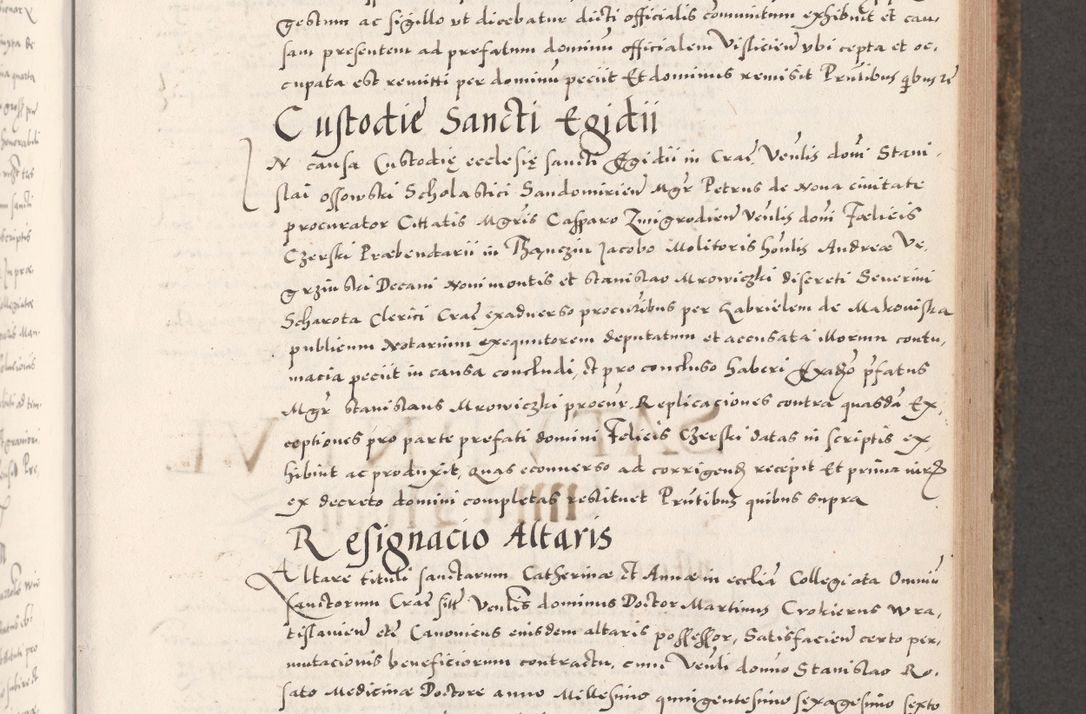 gestum ac sigillo ut dicebatur dicti officialis communitum exhibuit et cau-
sam presentem ad prefatum dominum officialem Vislicien ubi cepta et oc-
cupata est remitti per dominum peciit Et dominus remisit Prntibus qbus
Custodie Sancti Egidii
IN causa Custodię ecclesię sancti Egidii in Crac Venlis doni Stani
slai Ossowski Scholastici Sandomirien Mgr Petrus de Nova civitate
procurator Cittatis Mgris Casparo Zmigrodien Venlis doni Fœlicis
Czerski Præbendarii in Thęnczin Jacobo Molitoris honlis Andreæ We-
grzinski Decani Novimontis et Stanislao Mrowiczki discreti Severini
Scharota Clerici Crac exadverso procuribus per Gabrielem de Makoviska
publicum Notarium exequutorem deputatum et accusata illorum contu-
macia peciit in causa concludi, et pro concluso haberi Exadvo pfatus
Mgr Stanislaus Mrowiczki procur Replicaciones contra quasdam Ex-
ceptiones pro parte prefati domini Felicis Czerski datas in scriptis ex-
hibuit ac produxit, quas econverso ad corrigend recepit Et prima iurid
ex decreto domini completas restituet Prntibus quibus supra
Resignacio Altaris
Altare tituli sanctarum Catherinæ et Annæ in ecclia Collegiata Omniu
Sanctorum Crac sitte Venlis dominus Doctor Martinus Crokierus Wra-
tislavien etc Canonicus eiusdem altaris possessor, Satisfacien certo per-
mutacionis beneficiorum contractu, cum Venli domno Stanislao Ro-
sato Medicinæ Doctore anno Millesimo quingentesimo sexagesimo sexto